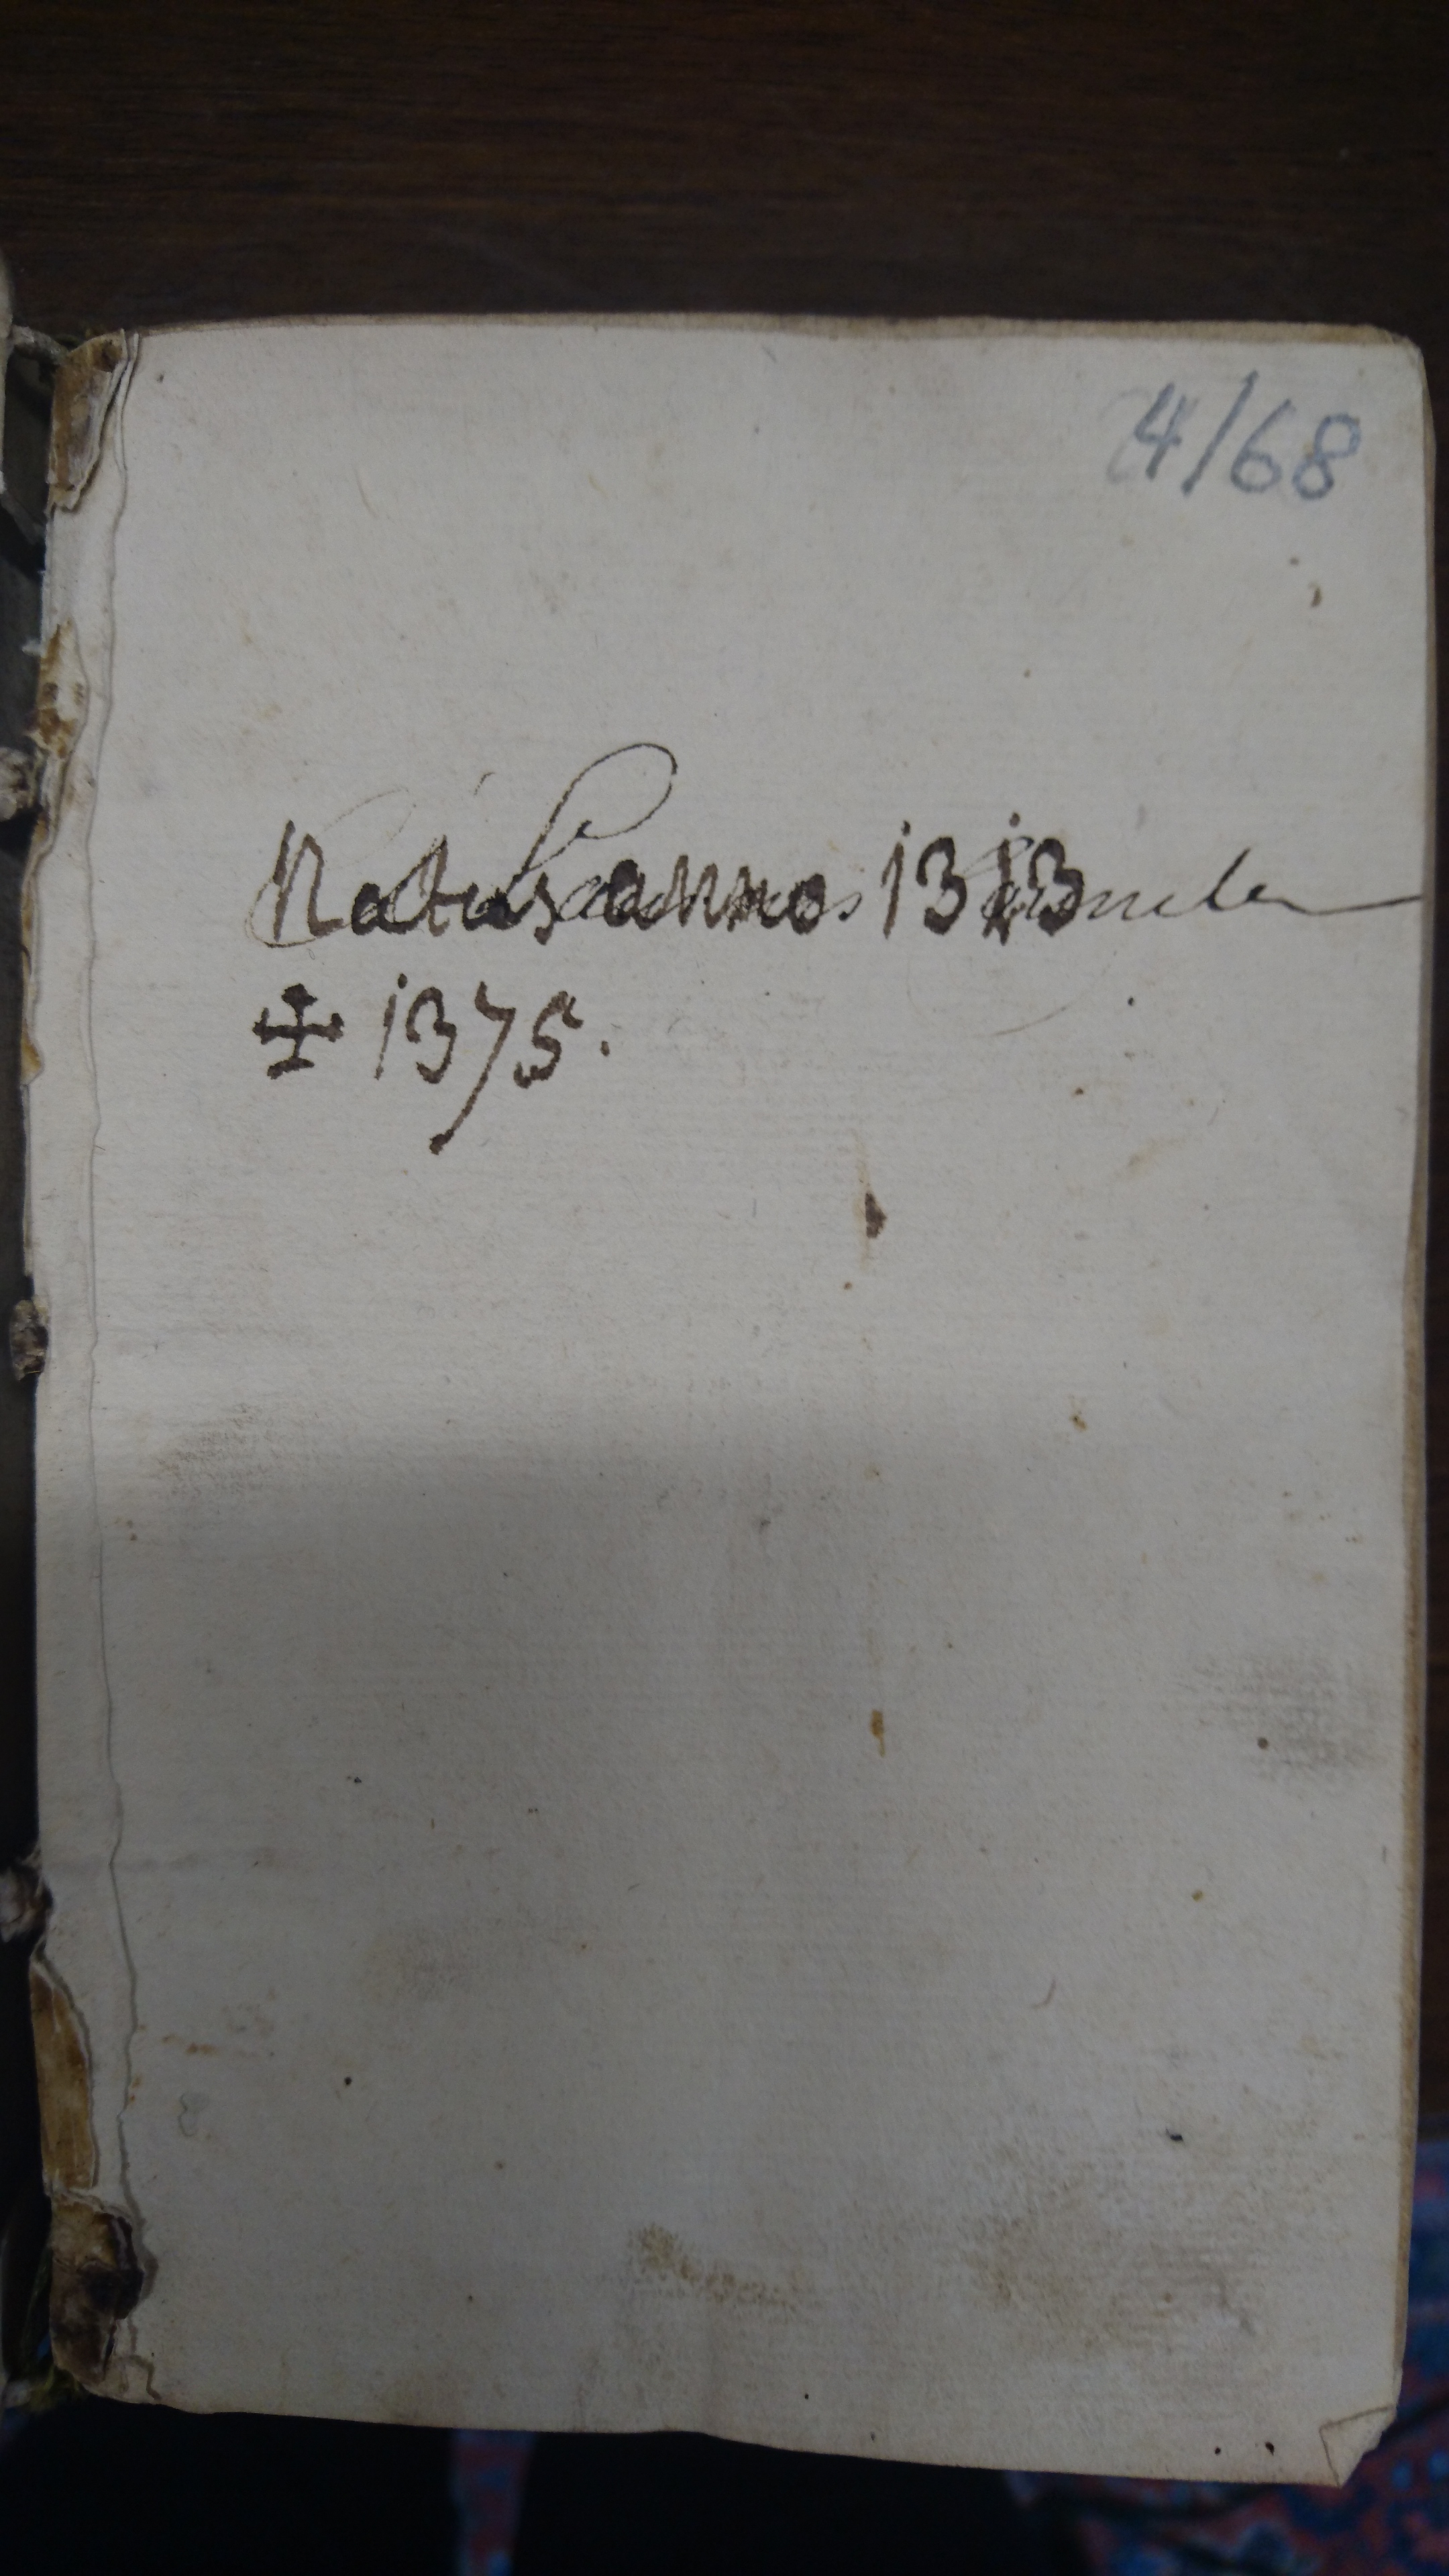 4/68
Natus anno 1313
✠ 1375.